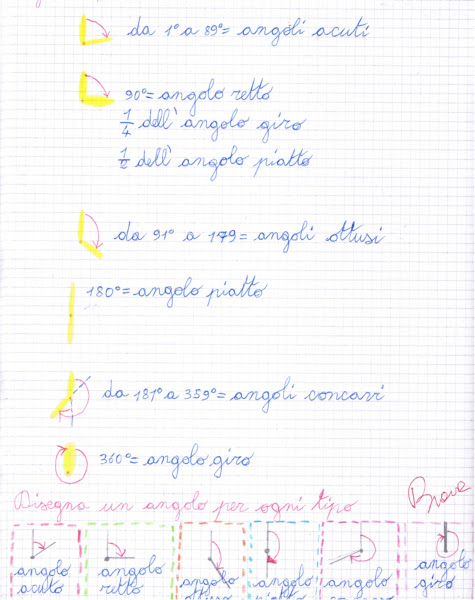 da 1° a 89° = angoli acuti
90° = angolo retto
1/4 dell'angolo giro
1/2 dell'angolo piatto
da 91° a 179 = angoli ottusi
180° = angolo piatto
da 181° a 359° = angoli concavi
360° = angolo giro
Disegna un angolo per ogni tipo
Brava
angolo acuto
angolo retto
angolo ottuso
angolo piatto
angolo concavo
angolo giro